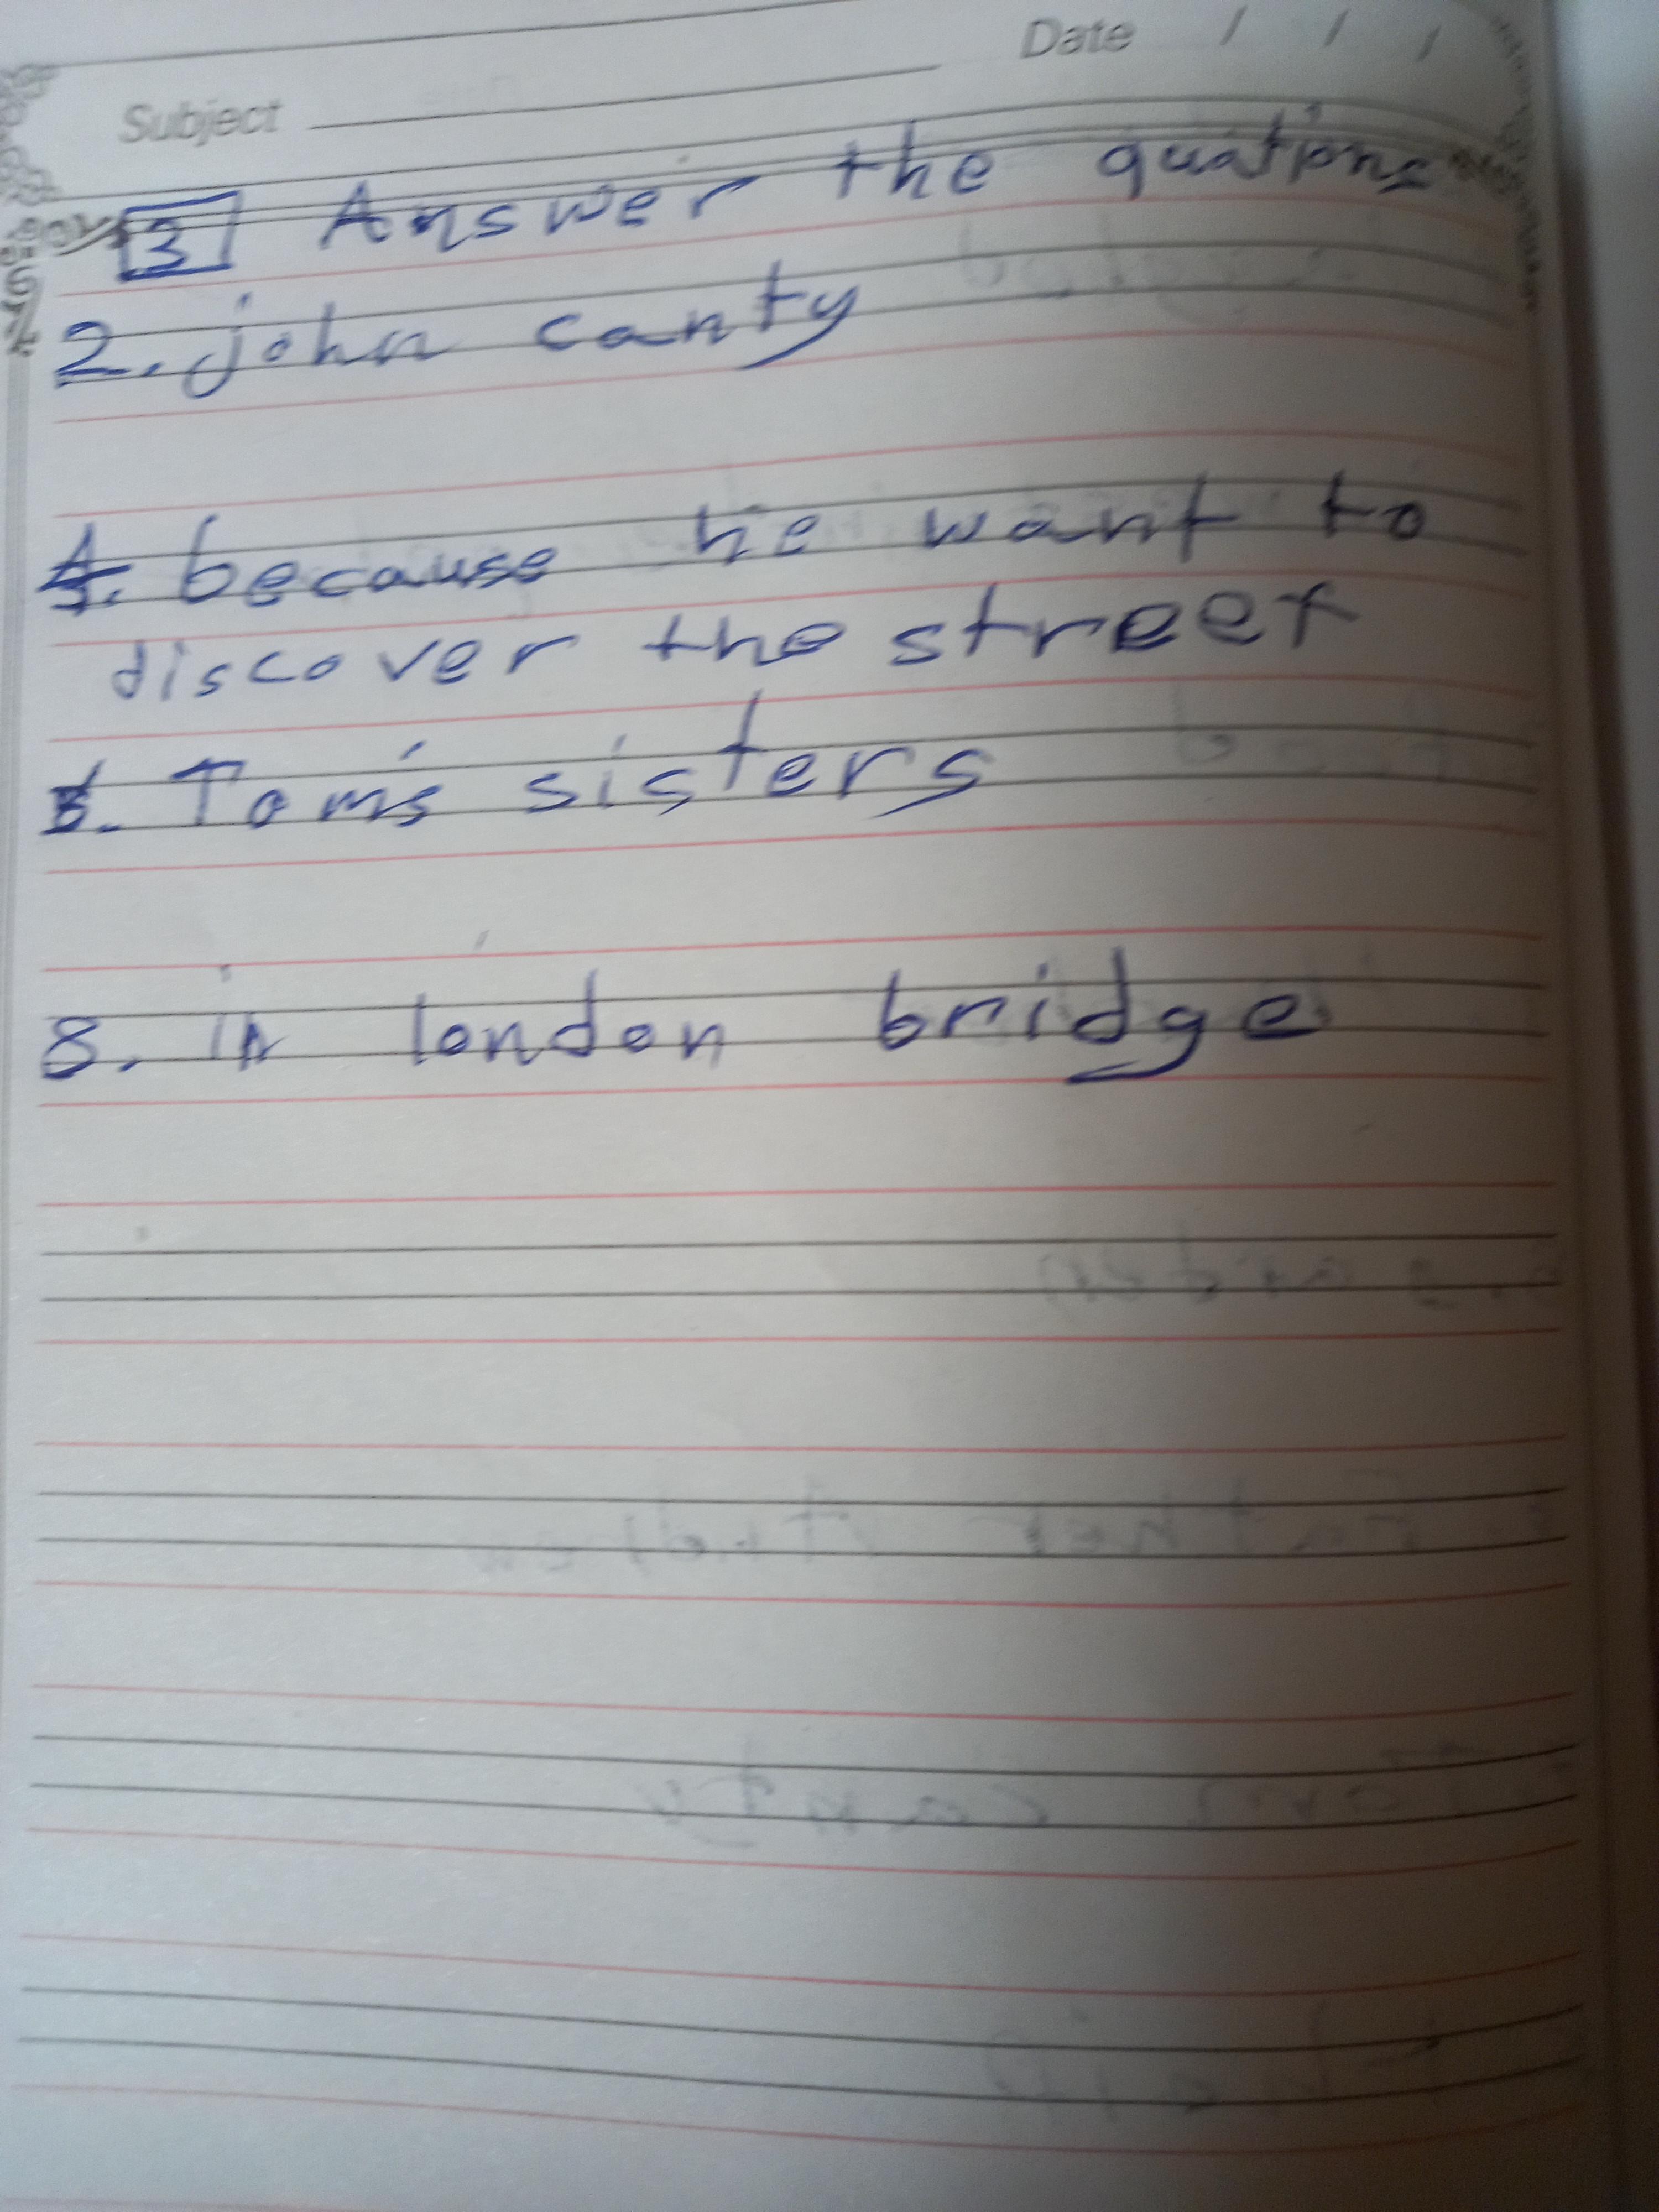 Date / / /
Subject
3 Answer the quations
2. john canty
4. because he want to
discover the street
6. Tom's sisters
8. in london bridge